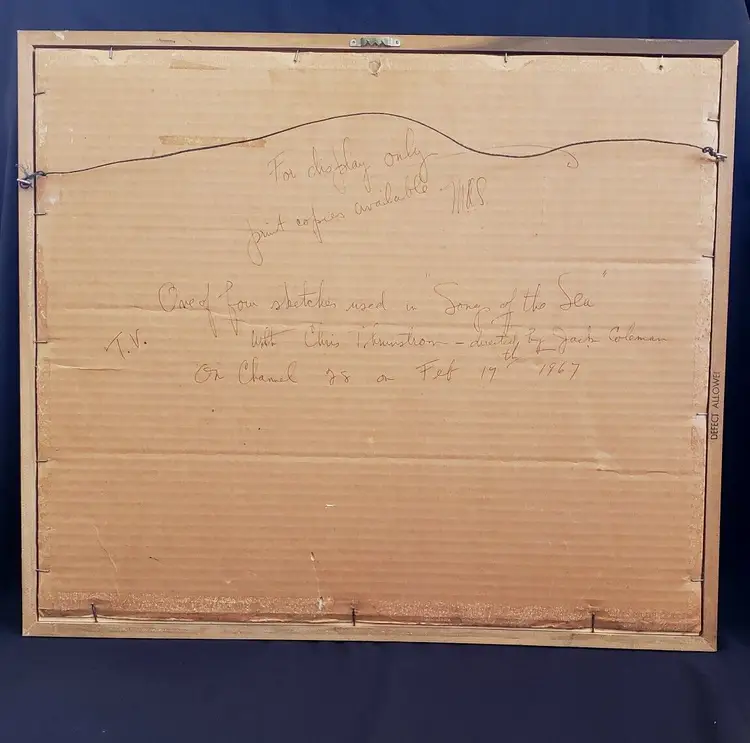 For display only
print copies available MRS
One of four sketches used in "Songs of the Sea"
T.V. with Chris - directed by Jack Coleman
On Channel 28 on Feb 17th 1967
DEFECT ALLOWED